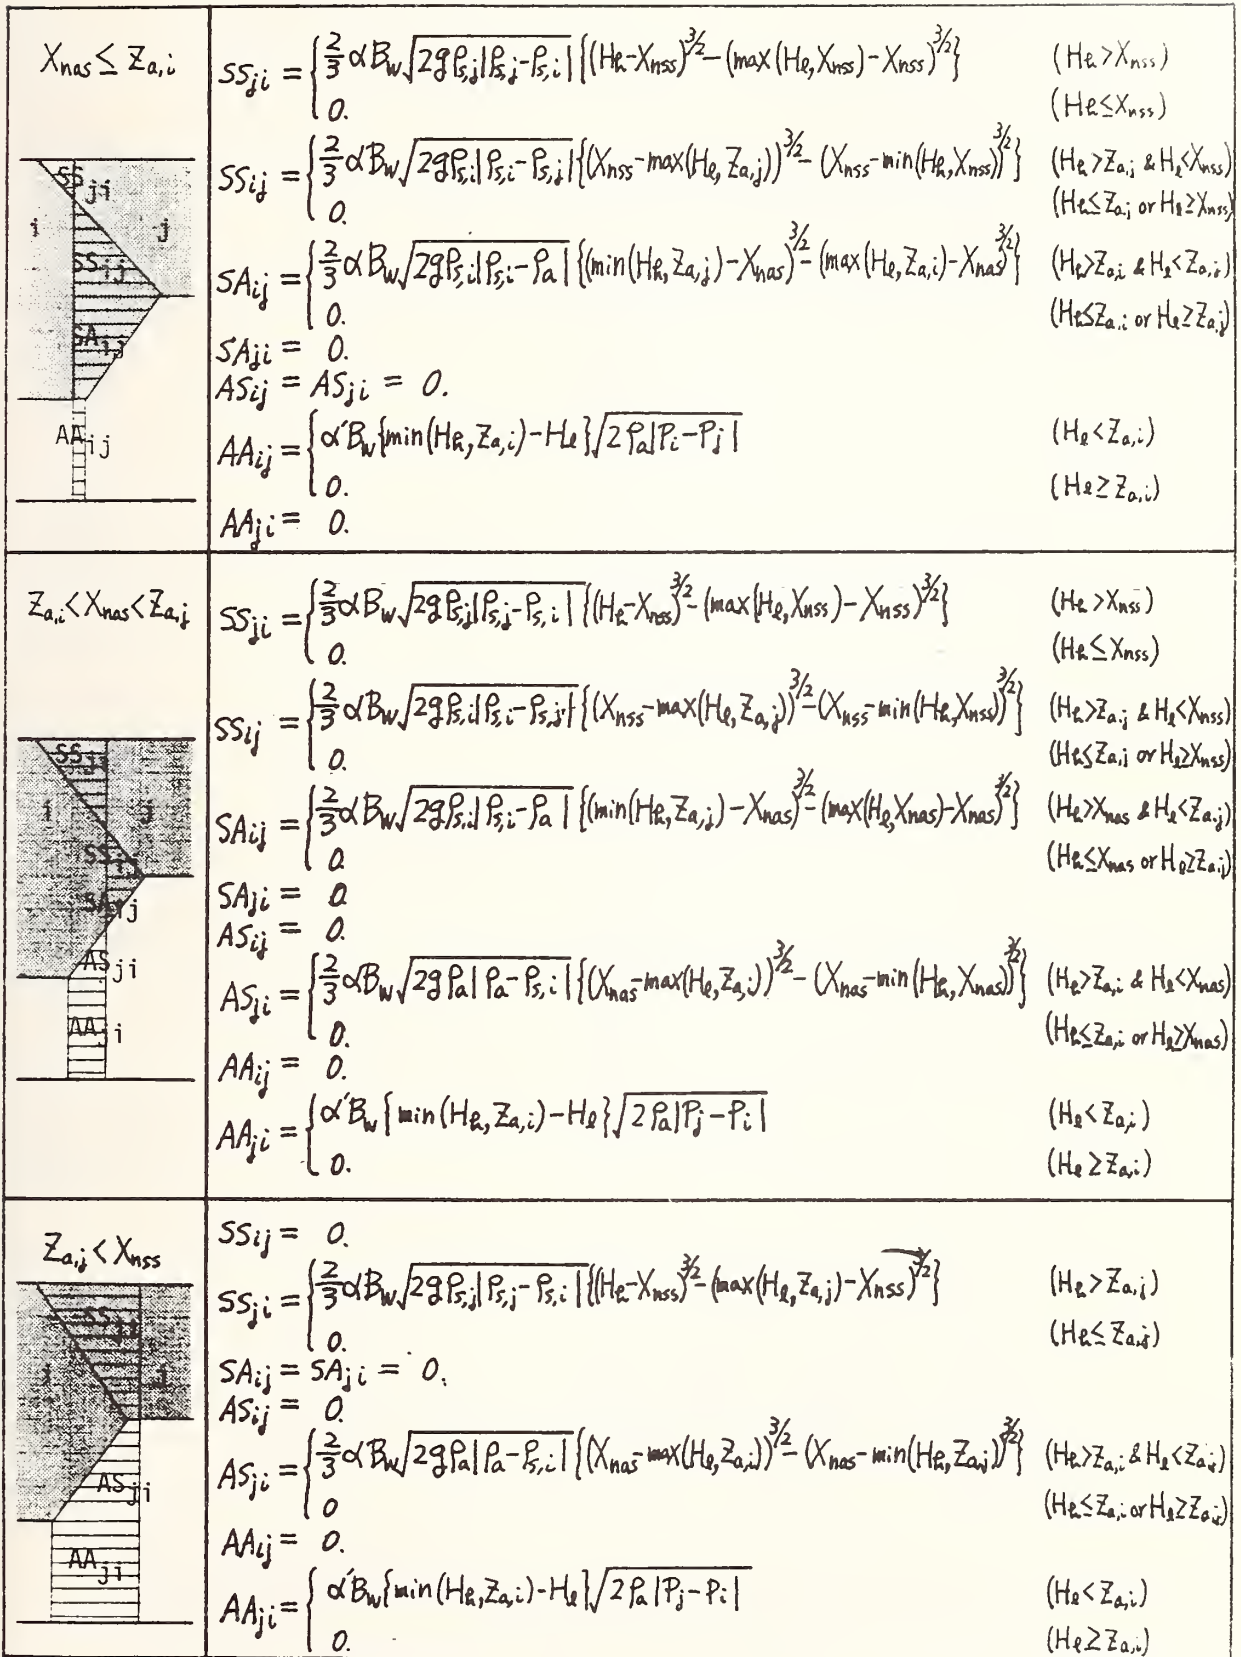 X_nas ≤ Z_a,i
SS_ji = { 2/3 αB_w √(2gρ_s,j|ρ_s,j-ρ_s,i|) {(H_h-X_nss)^3/2 - (max(H_l,X_nss)-X_nss)^3/2} (H_h>X_nss)
0. (H_h≤X_nss)
SS_ij = { 2/3 αB_w √(2gρ_s,i|ρ_s,i-ρ_s,j|) {(X_nss-max(H_l,Z_a,j))^3/2 - (X_nss-min(H_h,X_nss))^3/2} (H_h>Z_a,j & H_l<X_nss)
0. (H_h≤Z_a,j or H_l≥X_nss)
SA_ij = { 2/3 αB_w √(2gρ_s,i|ρ_s,i-ρ_a|) {(min(H_h,Z_a,j)-X_nas)^3/2 - (max(H_l,Z_a,i)-X_nas)^3/2} (H_h>Z_a,i & H_l<Z_a,j)
0. (H_h≤Z_a,i or H_l≥Z_a,j)
SA_ji = 0.
AS_ij = AS_ji = 0.
AA_ij = { α'B_w{min(H_h,Z_a,i)-H_l}√(2ρ_a|P_i-P_j|) (H_l<Z_a,i)
0. (H_l≥Z_a,i)
AA_ji = 0.
SS_ji
i j
SS_ij
SA_ij
AA_ij
Z_a,i<X_nas<Z_a,j
SS_ji = { 2/3 αB_w √(2gρ_s,j|ρ_s,j-ρ_s,i|) {(H_h-X_nss)^3/2 - (max(H_l,X_nss)-X_nss)^3/2} (H_h>X_nss)
0. (H_h≤X_nss)
SS_ij = { 2/3 αB_w √(2gρ_s,i|ρ_s,i-ρ_s,j|) {(X_nss-max(H_l,Z_a,j))^3/2 - (X_nss-min(H_h,X_nss))^3/2} (H_h>Z_a,j & H_l<X_nss)
0. (H_h≤Z_a,j or H_l≥X_nss)
SA_ij = { 2/3 αB_w √(2gρ_s,i|ρ_s,i-ρ_a|) {(min(H_h,Z_a,j)-X_nas)^3/2 - (max(H_l,X_nas)-X_nas)^3/2} (H_h>X_nas & H_l<Z_a,j)
0. (H_h≤X_nas or H_l≥Z_a,j)
SA_ji = 0.
AS_ij = 0.
AS_ji = { 2/3 αB_w √(2gρ_a|ρ_a-ρ_s,i|) {(X_nas-max(H_l,Z_a,i))^3/2 - (X_nas-min(H_h,X_nas))^3/2} (H_h>Z_a,i & H_l<X_nas)
0. (H_h≤Z_a,i or H_l≥X_nas)
AA_ij = 0.
AA_ji = { α'B_w{min(H_h,Z_a,i)-H_l}√(2ρ_a|P_j-P_i|) (H_l<Z_a,i)
0. (H_l≥Z_a,i)
SS_ji
i j
SS_ij
SA_ij
AS_ji
AA_ji
Z_a,j<X_nss
SS_ij = 0.
SS_ji = { 2/3 αB_w √(2gρ_s,j|ρ_s,j-ρ_s,i|) {(H_h-X_nss)^3/2 - (max(H_l,Z_a,j)-X_nss)^3/2} (H_h>Z_a,j)
0. (H_h≤Z_a,j)
SA_ij = SA_ji = 0.
AS_ij = 0.
AS_ji = { 2/3 αB_w √(2gρ_a|ρ_a-ρ_s,i|) {(X_nas-max(H_l,Z_a,i))^3/2 - (X_nas-min(H_h,Z_a,j))^3/2} (H_h>Z_a,i & H_l<Z_a,j)
0 (H_h≤Z_a,i or H_l≥Z_a,j)
AA_ij = 0.
AA_ji = { α'B_w{min(H_h,Z_a,i)-H_l}√(2ρ_a|P_j-P_i|) (H_l<Z_a,i)
0. (H_l≥Z_a,i)
SS_ji
i j
AS_ji
AA_ji